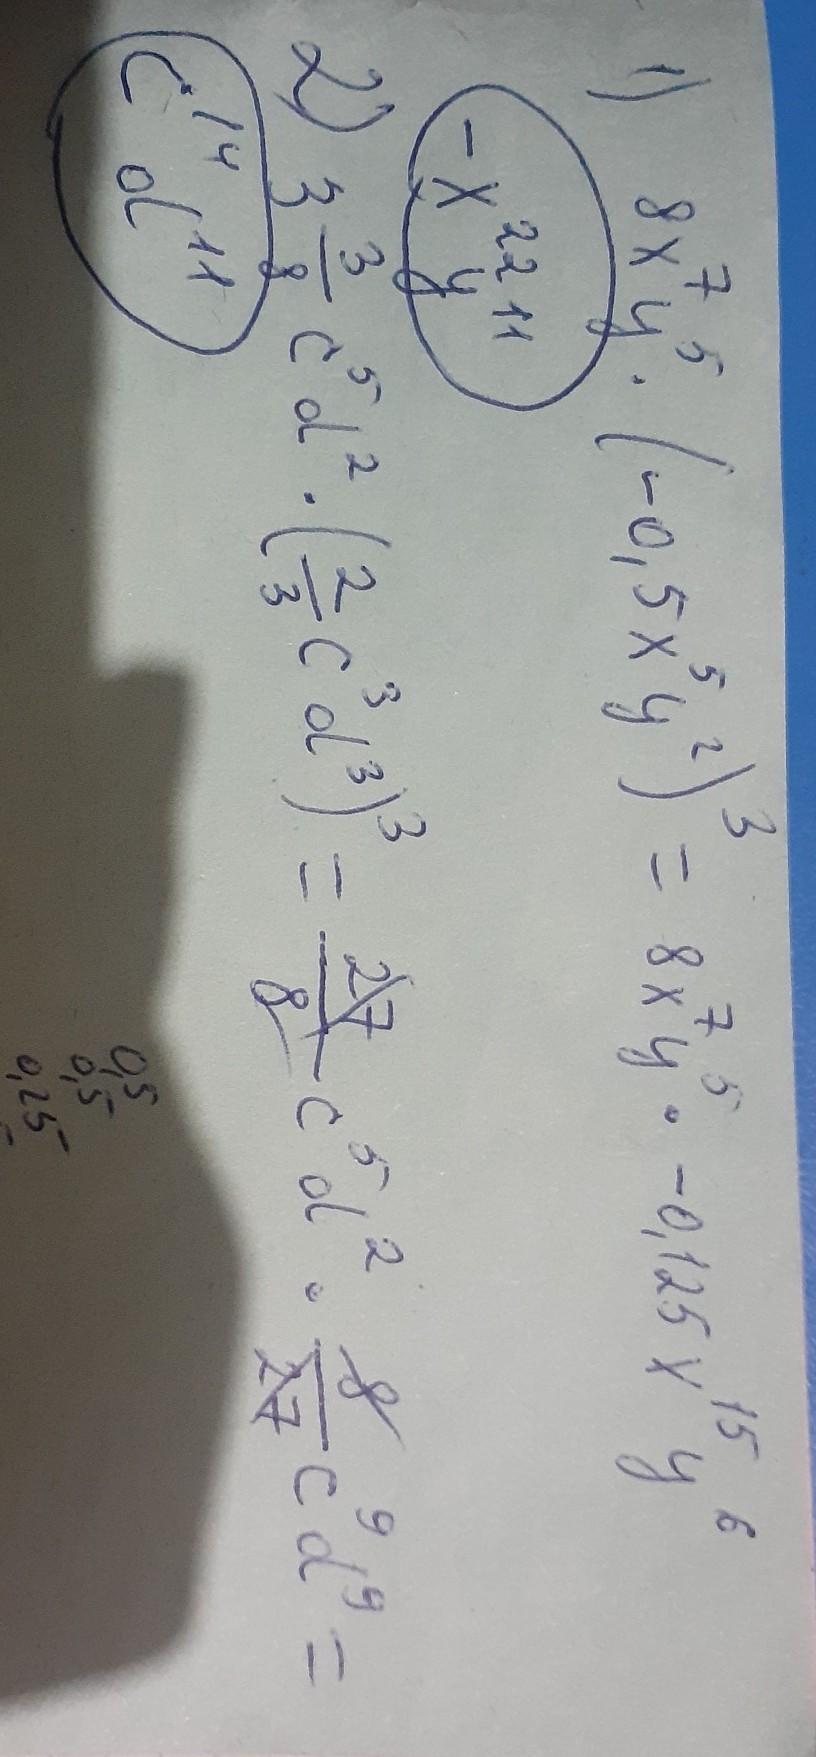 1) 8x⁷y⁵ · (-0,5x⁵y²)³ = 8x⁷y⁵ · -0,125x¹⁵y⁶
-x²²y¹¹
2) 3 3/8 c⁵d² · (2/3 c³d³)³ = 27/8 c⁵d² · 8/27 c⁹d⁹ =
c¹⁴d¹¹
0,5
0,5
0,25